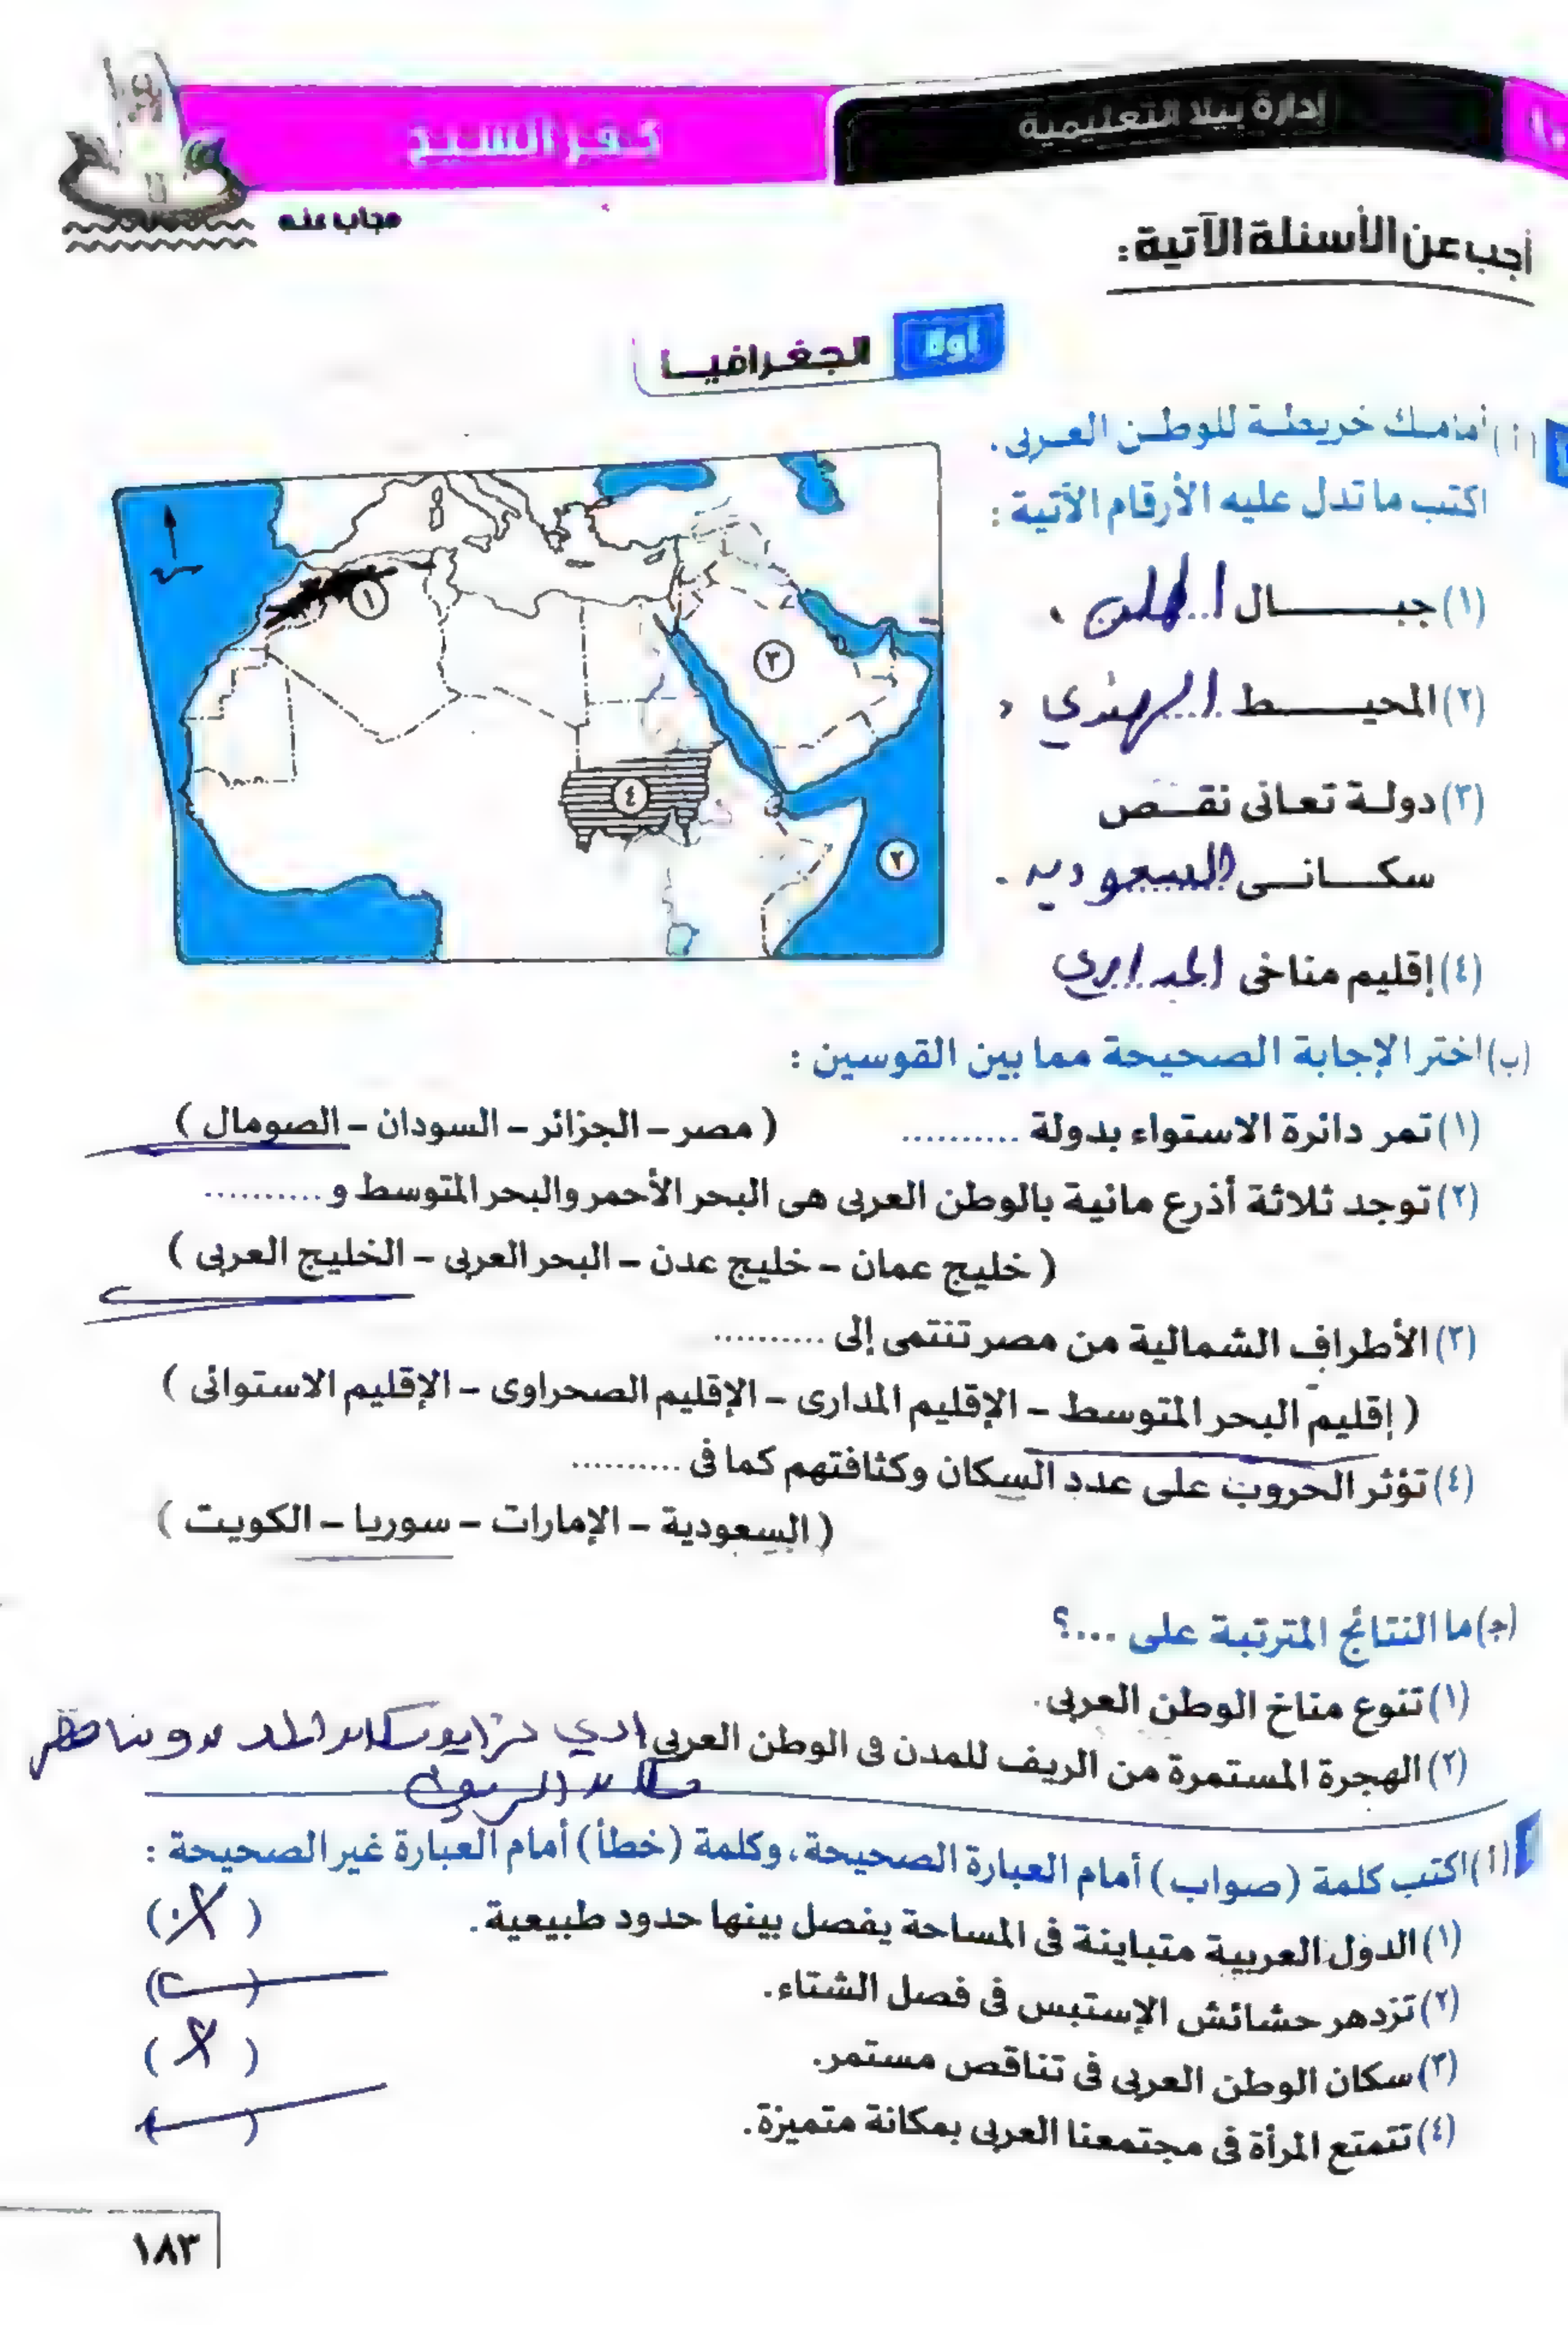 إدارة بيلا التعليمية
كفر الشيخ
مجاب عنه
أجب عن الأسئلة الآتية:
أولا الجغرافيا
(أ) أمامك خريطة للوطن العربى.
اكتب ما تدل عليه الأرقام الآتية:
(١) جبال
(٢) المحيط الهندي
(٣) دولة تعانى نقص
سكانى السعوديه.
(٤) إقليم مناخى المداري
١
٣
٤
٢
(ب) اختر الإجابة الصحيحة مما بين القوسين:
(١) تمر دائرة الاستواء بدولة .......... (مصر – الجزائر – السودان – الصومال)
(٢) توجد ثلاثة أذرع مائية بالوطن العربى هى البحر الأحمر والبحر المتوسط و..........
(خليج عمان – خليج عدن – البحر العربى – الخليج العربى)
(٣) الأطراف الشمالية من مصر تنتمى إلى ..........
(إقليم البحر المتوسط – الإقليم المدارى – الإقليم الصحراوى – الإقليم الاستوائى)
(٤) تؤثر الحروب على عدد السكان وكثافتهم كما فى ..........
(السعودية – الإمارات – سوريا – الكويت)
(ج) ما النتائج المترتبة على ....؟
(١) تنوع مناخ الوطن العربى.
(٢) الهجرة المستمرة من الريف للمدن فى الوطن العربى
(أ) اكتب كلمة (صواب) أمام العبارة الصحيحة، وكلمة (خطأ) أمام العبارة غير الصحيحة:
(١) الدول العربية متباينة فى المساحة يفصل بينها حدود طبيعية. (X)
(٢) تزدهر حشائش الإستبس فى فصل الشتاء. ( )
(٣) سكان الوطن العربى فى تناقص مستمر. (X)
(٤) تتمتع المرأة فى مجتمعنا العربى بمكانة متميزة. ( )
١٨٣